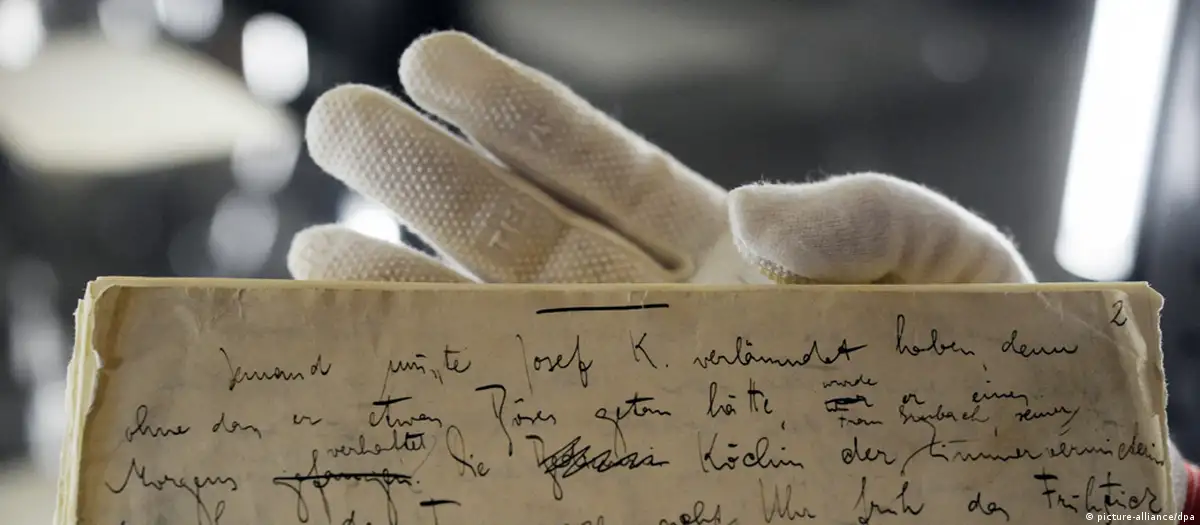 2
Jemand mußte Josef K. verläumdet haben, denn
wurde
ohne daß er etwas Böses getan hätte, war er eines
verhaftet Frau Grubach, seiner
Morgens gefangen. Die Köchin der Zimmervermieterin
acht Uhr früh das Frühstück
© picture-alliance/dpa